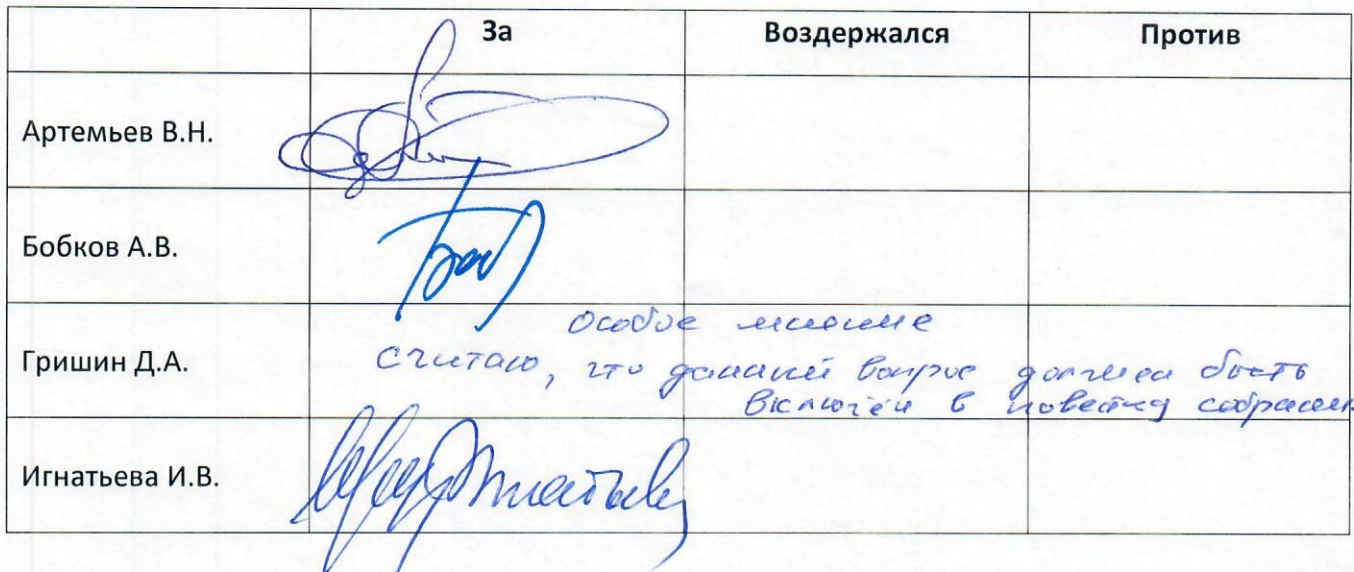 За Воздержался Против
Артемьев В.Н.
Бобков А.В.
Особое мнение
Гришин Д.А. Считаю, что данный вопрос должен быть
включён в повестку собрания.
Игнатьева И.В.